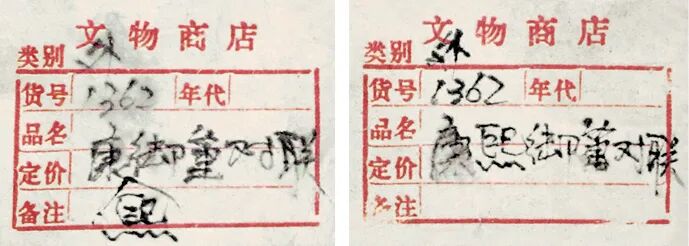 文物商店
类别 外
货号 1362 年代
品名
康御童对联
定价
熙
备注
文物商店
类别 外
货号 1362 年代
品名
康熙御童对联
定价
备注